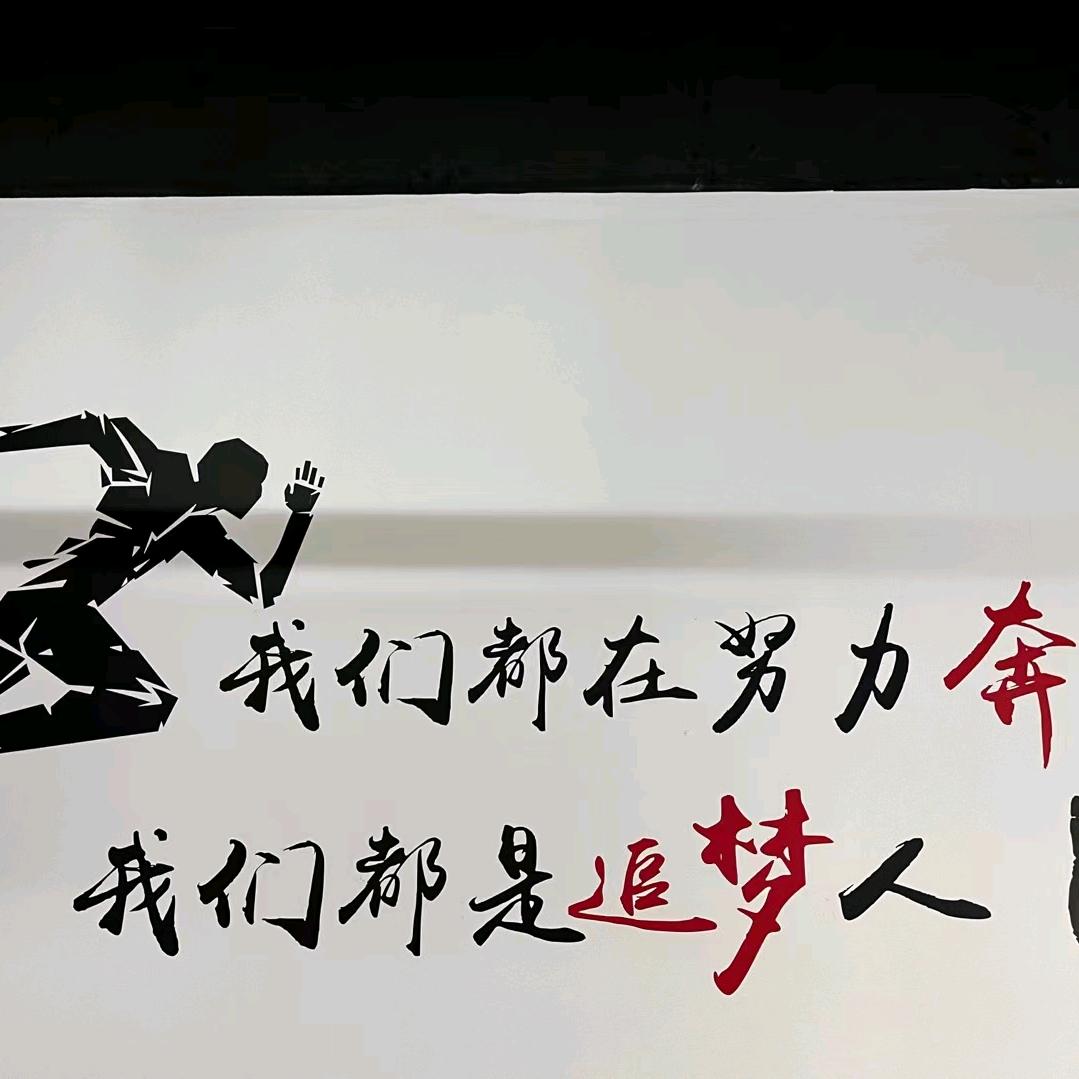 我们都在努力奔
我们都是追梦人